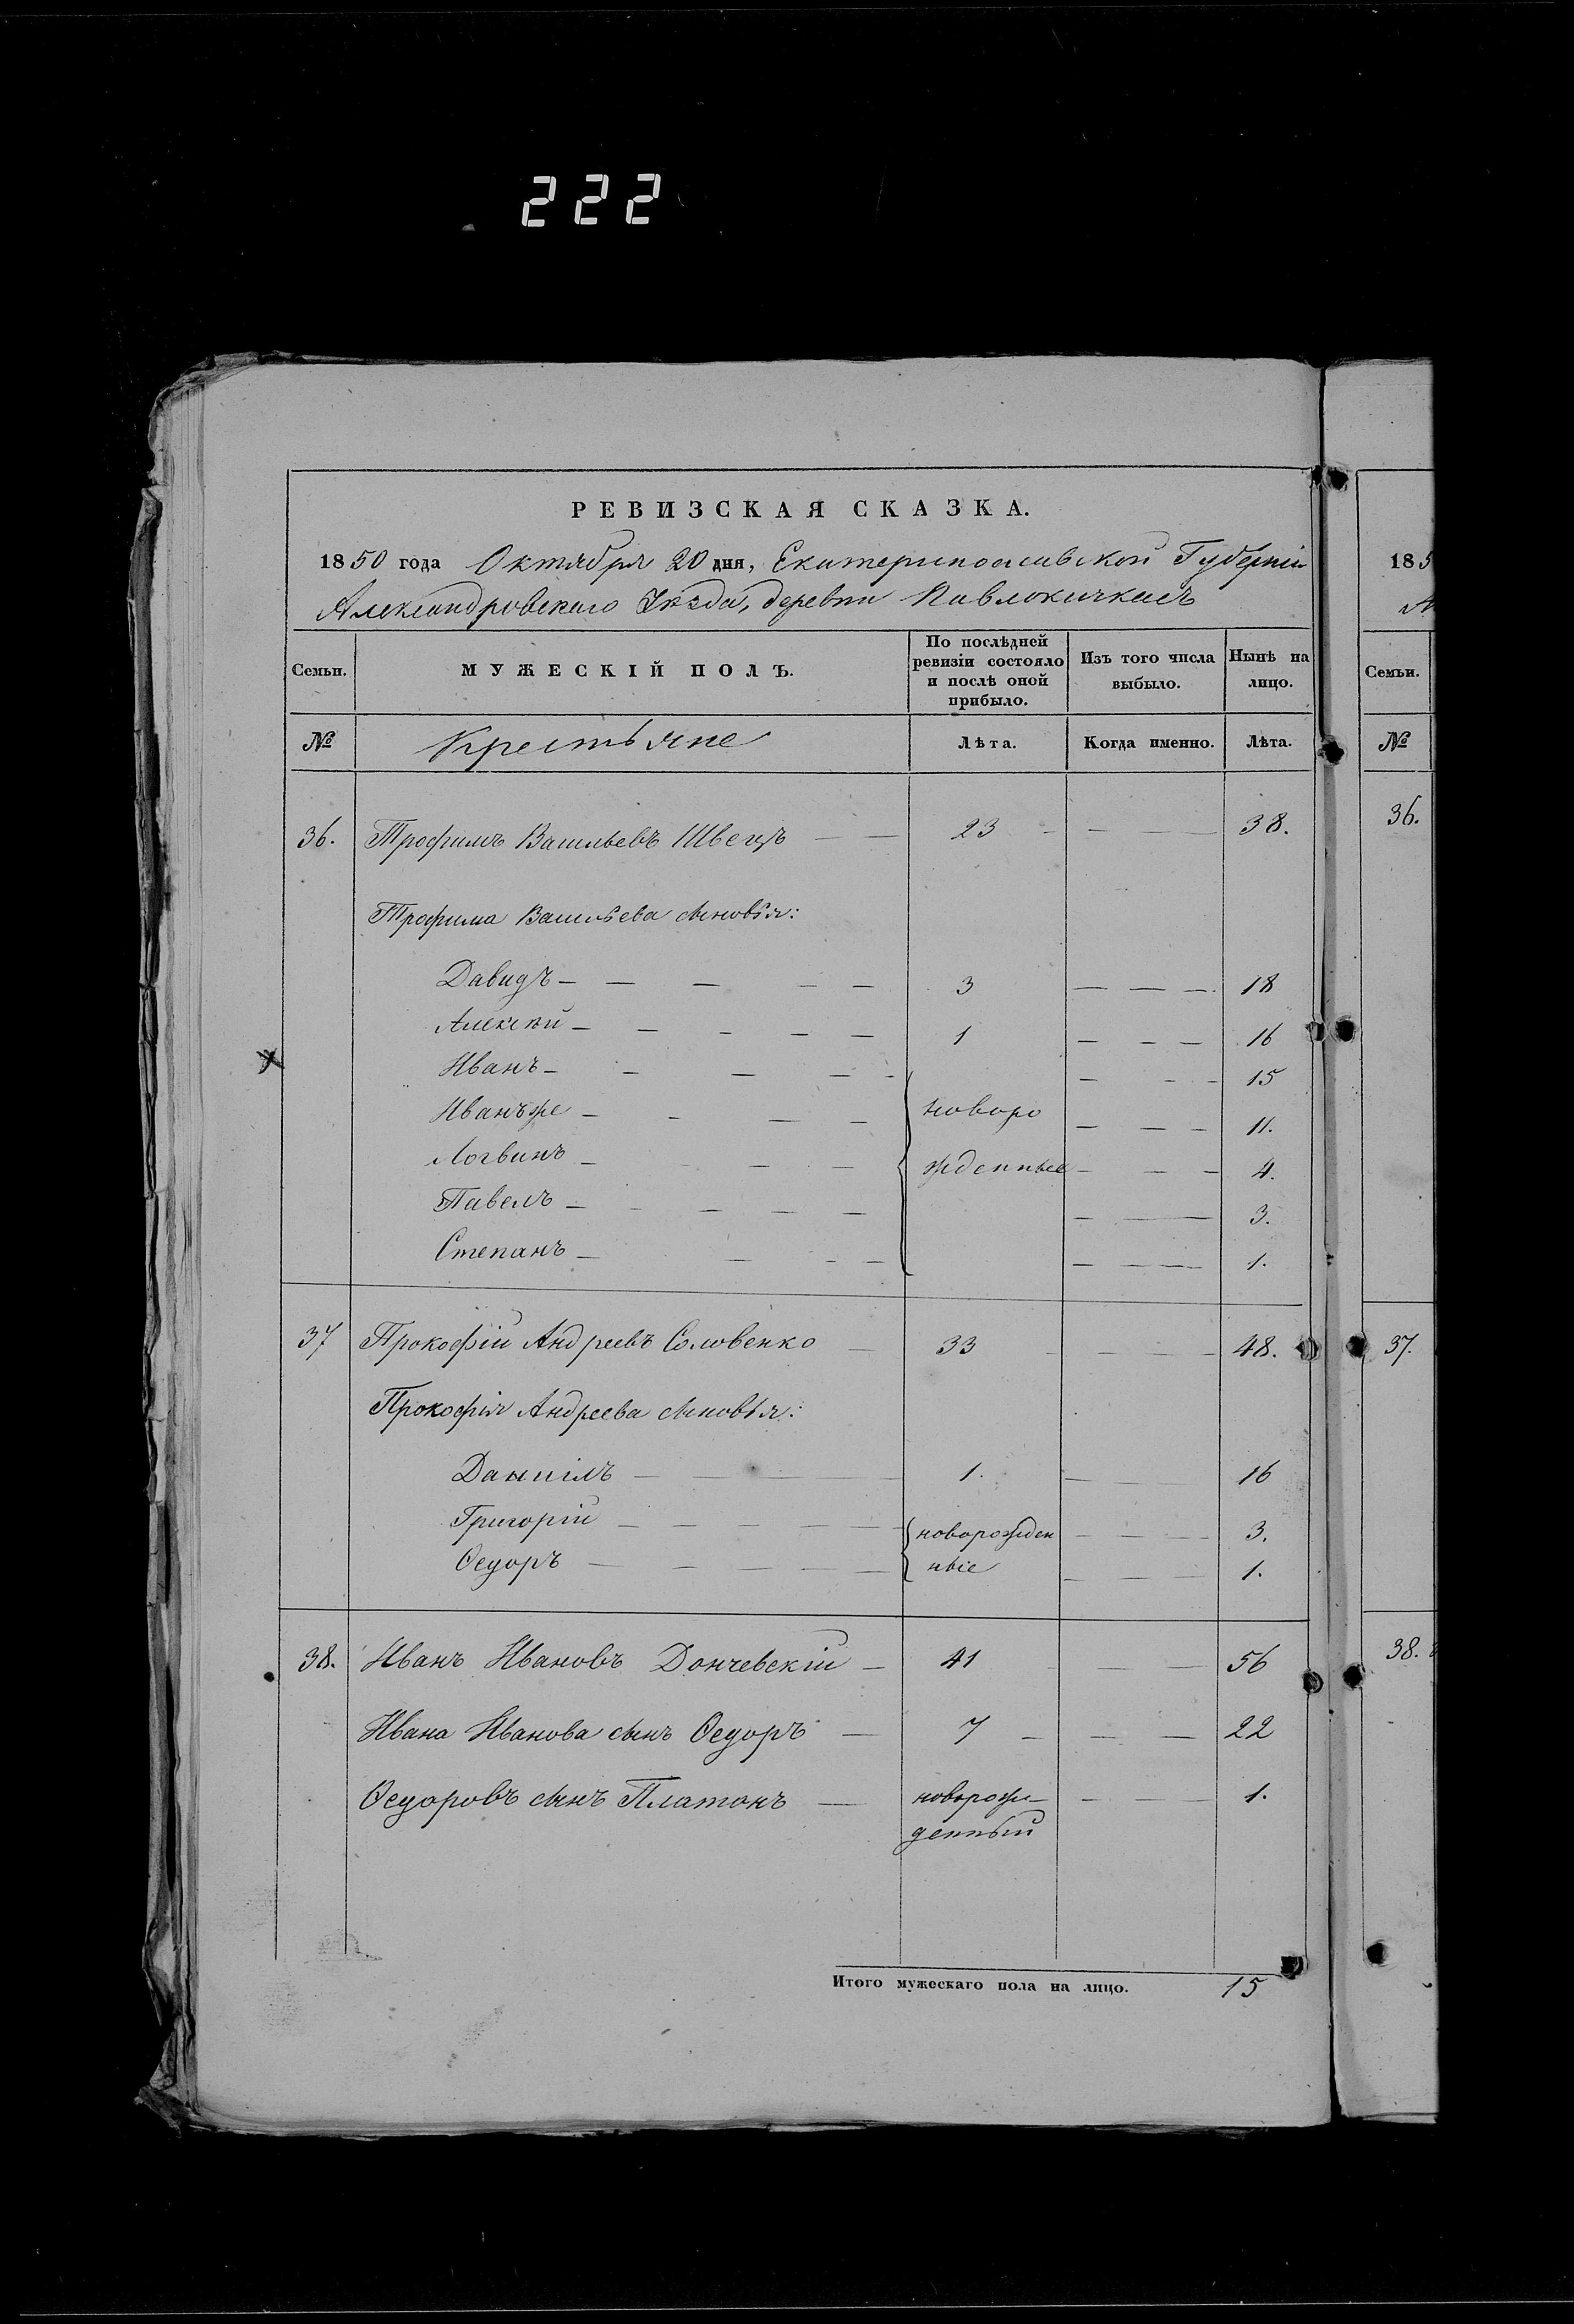 222
РЕВИЗСКАЯ СКАЗКА.
1850 года Октября 20 дня, Екатеринославской Губерніи
Александровскаго Уѣзда, деревни Павлокичкасъ
185
Семьи. МУЖЕСКІЙ ПОЛЪ. По послѣдней ревизіи состояло и послѣ оной прибыло. Изъ того числа выбыло. Нынѣ на лицо. Семьи.
№ Крестьяне Лѣта. Когда именно. Лѣта. №
36. Трофимъ Васильевъ Швецъ — — 23 — — 38. 36.
Трофима Васильева сыновья:
Давидъ — — — — — 3 — — — 18
Алексѣй — — — — — 1 — — — 16
Иванъ — — — — — — — — 15
Иванъ же — — — — новоро — — — 11.
Логвинъ — — — — жденные — — — 4.
Павелъ — — — — — — — 3.
Степанъ — — — — — — — 1.
37 Прокофій Андреевъ Соловенко — 33 — — — — 48. 37.
Прокофія Андреева сыновья:
Даніилъ — — — 1. — — — 16
Григорій — — — — — новорожден — — — 3.
Ѳедоръ — — — — — ные — — — 1.
38. Иванъ Ивановъ Дончевскій — 41 — — — 56 38.
Ивана Иванова сынъ Ѳедоръ — 7 — — — 22
Ѳедоровъ сынъ Платонъ — новорож— — — 1.
денный
Итого мужескаго пола на лицо. 15